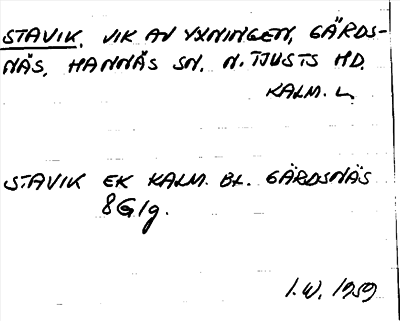 STAVIK, VIK AV YXNINGEN, GÄRDS-
NÄS, HANNÄS SN. N. TJUSTS HD.
KALM. L.
STAVIK EK KALM. BL. GÄRDSNÄS
8G1g.
I.W. 1959